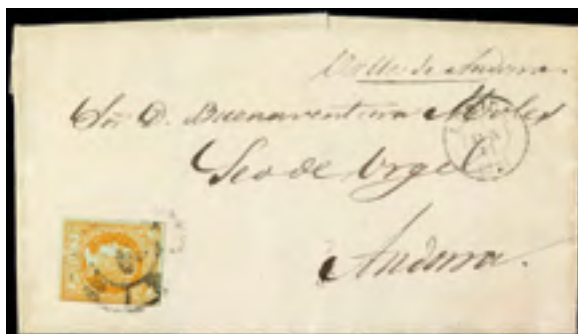 Valle de Andorra
Sr. D. Buenaventura Moles
Seo de Urgel.
Andorra.